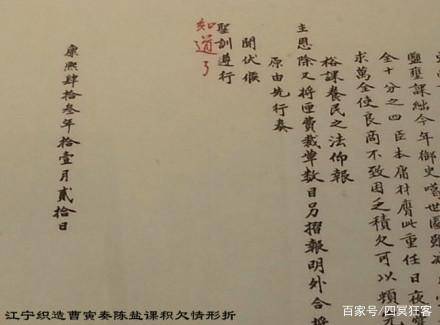 鹽壅課絀今年御史噶世圖雖
全十分之四臣本庸材膺此重任日夜
求萬全使良商不致困乏積欠可以
裕課養民之法仰報
主恩除又將匣費裁革數目另摺報明外合
原由先行奏
聞伏候
聖訓遵行
知道了
康熙肆拾叁年拾壹月貳拾日
江宁织造曹寅奏陈盐课积欠情形折
百家号/四冥狂客